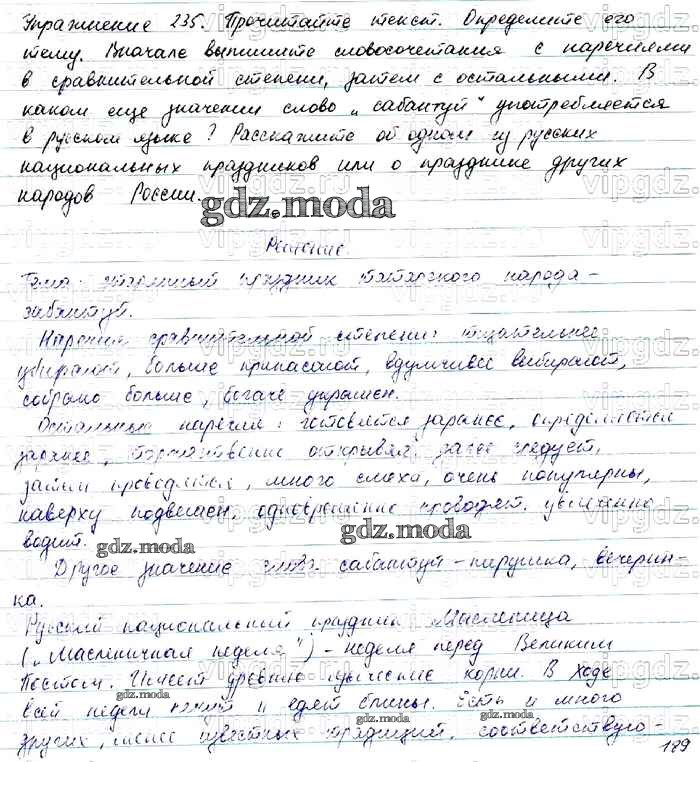 Упражнение 235. Прочитайте текст. Определите его
тему. Вначале выпишите словосочетания с наречиями
в сравнительной степени, затем с остальными. В
каком еще значении слово „сабантуй" употребляется
в русском языке? Расскажите об одном из русских
национальных праздников или о празднике других
народов России.
gdz.moda
Решение
Тема: праздник татарского народа -
Наречия сравнительной степени: тщательнее
убирают, больше припасают, вдумчивее выбирают,
собрано больше, богаче украшен.
Остальные наречия: готовятся заранее, определяется
заранее, торжественно открывал, далее следует,
затем проводятся, много смеха, очень популярны,
наверху подвешен, одновременно проводят, увлеченно
водит.
gdz.moda
gdz.moda
Другое значение слова сабантуй - пирушка, вечерин-
ка.
Русский национальный праздник Масленица
(„Масленичная неделя") - неделя перед Великим
Постом. Имеет древние языческие корни. В ходе
gdz.moda
всей недели и едят блины. Есть и много
gdz.moda
других, менее известных традиций, соответствую-
gdz.moda
189